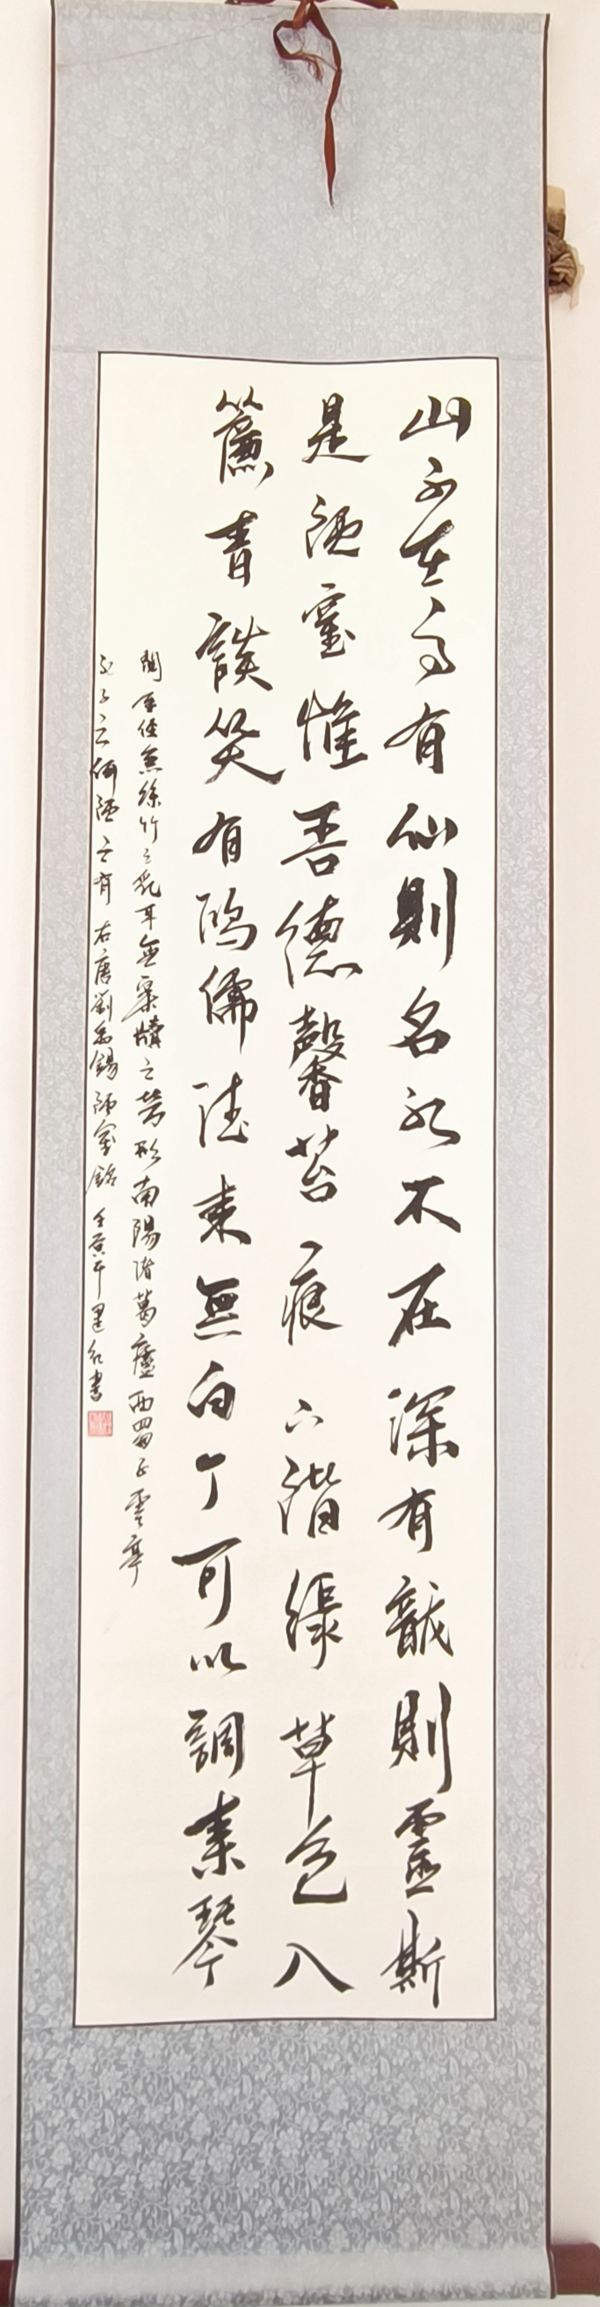 山不在高有仙則名水不在深有龍則靈斯
是陋室惟吾德馨苔痕上階綠草色入
簾青談笑有鴻儒往來無白丁可以調素琴
閱金經無絲竹之亂耳無案牘之勞形南陽諸葛廬西蜀子雲亭
孔子云何陋之有 右唐劉禹錫陋室銘 壬寅年 書